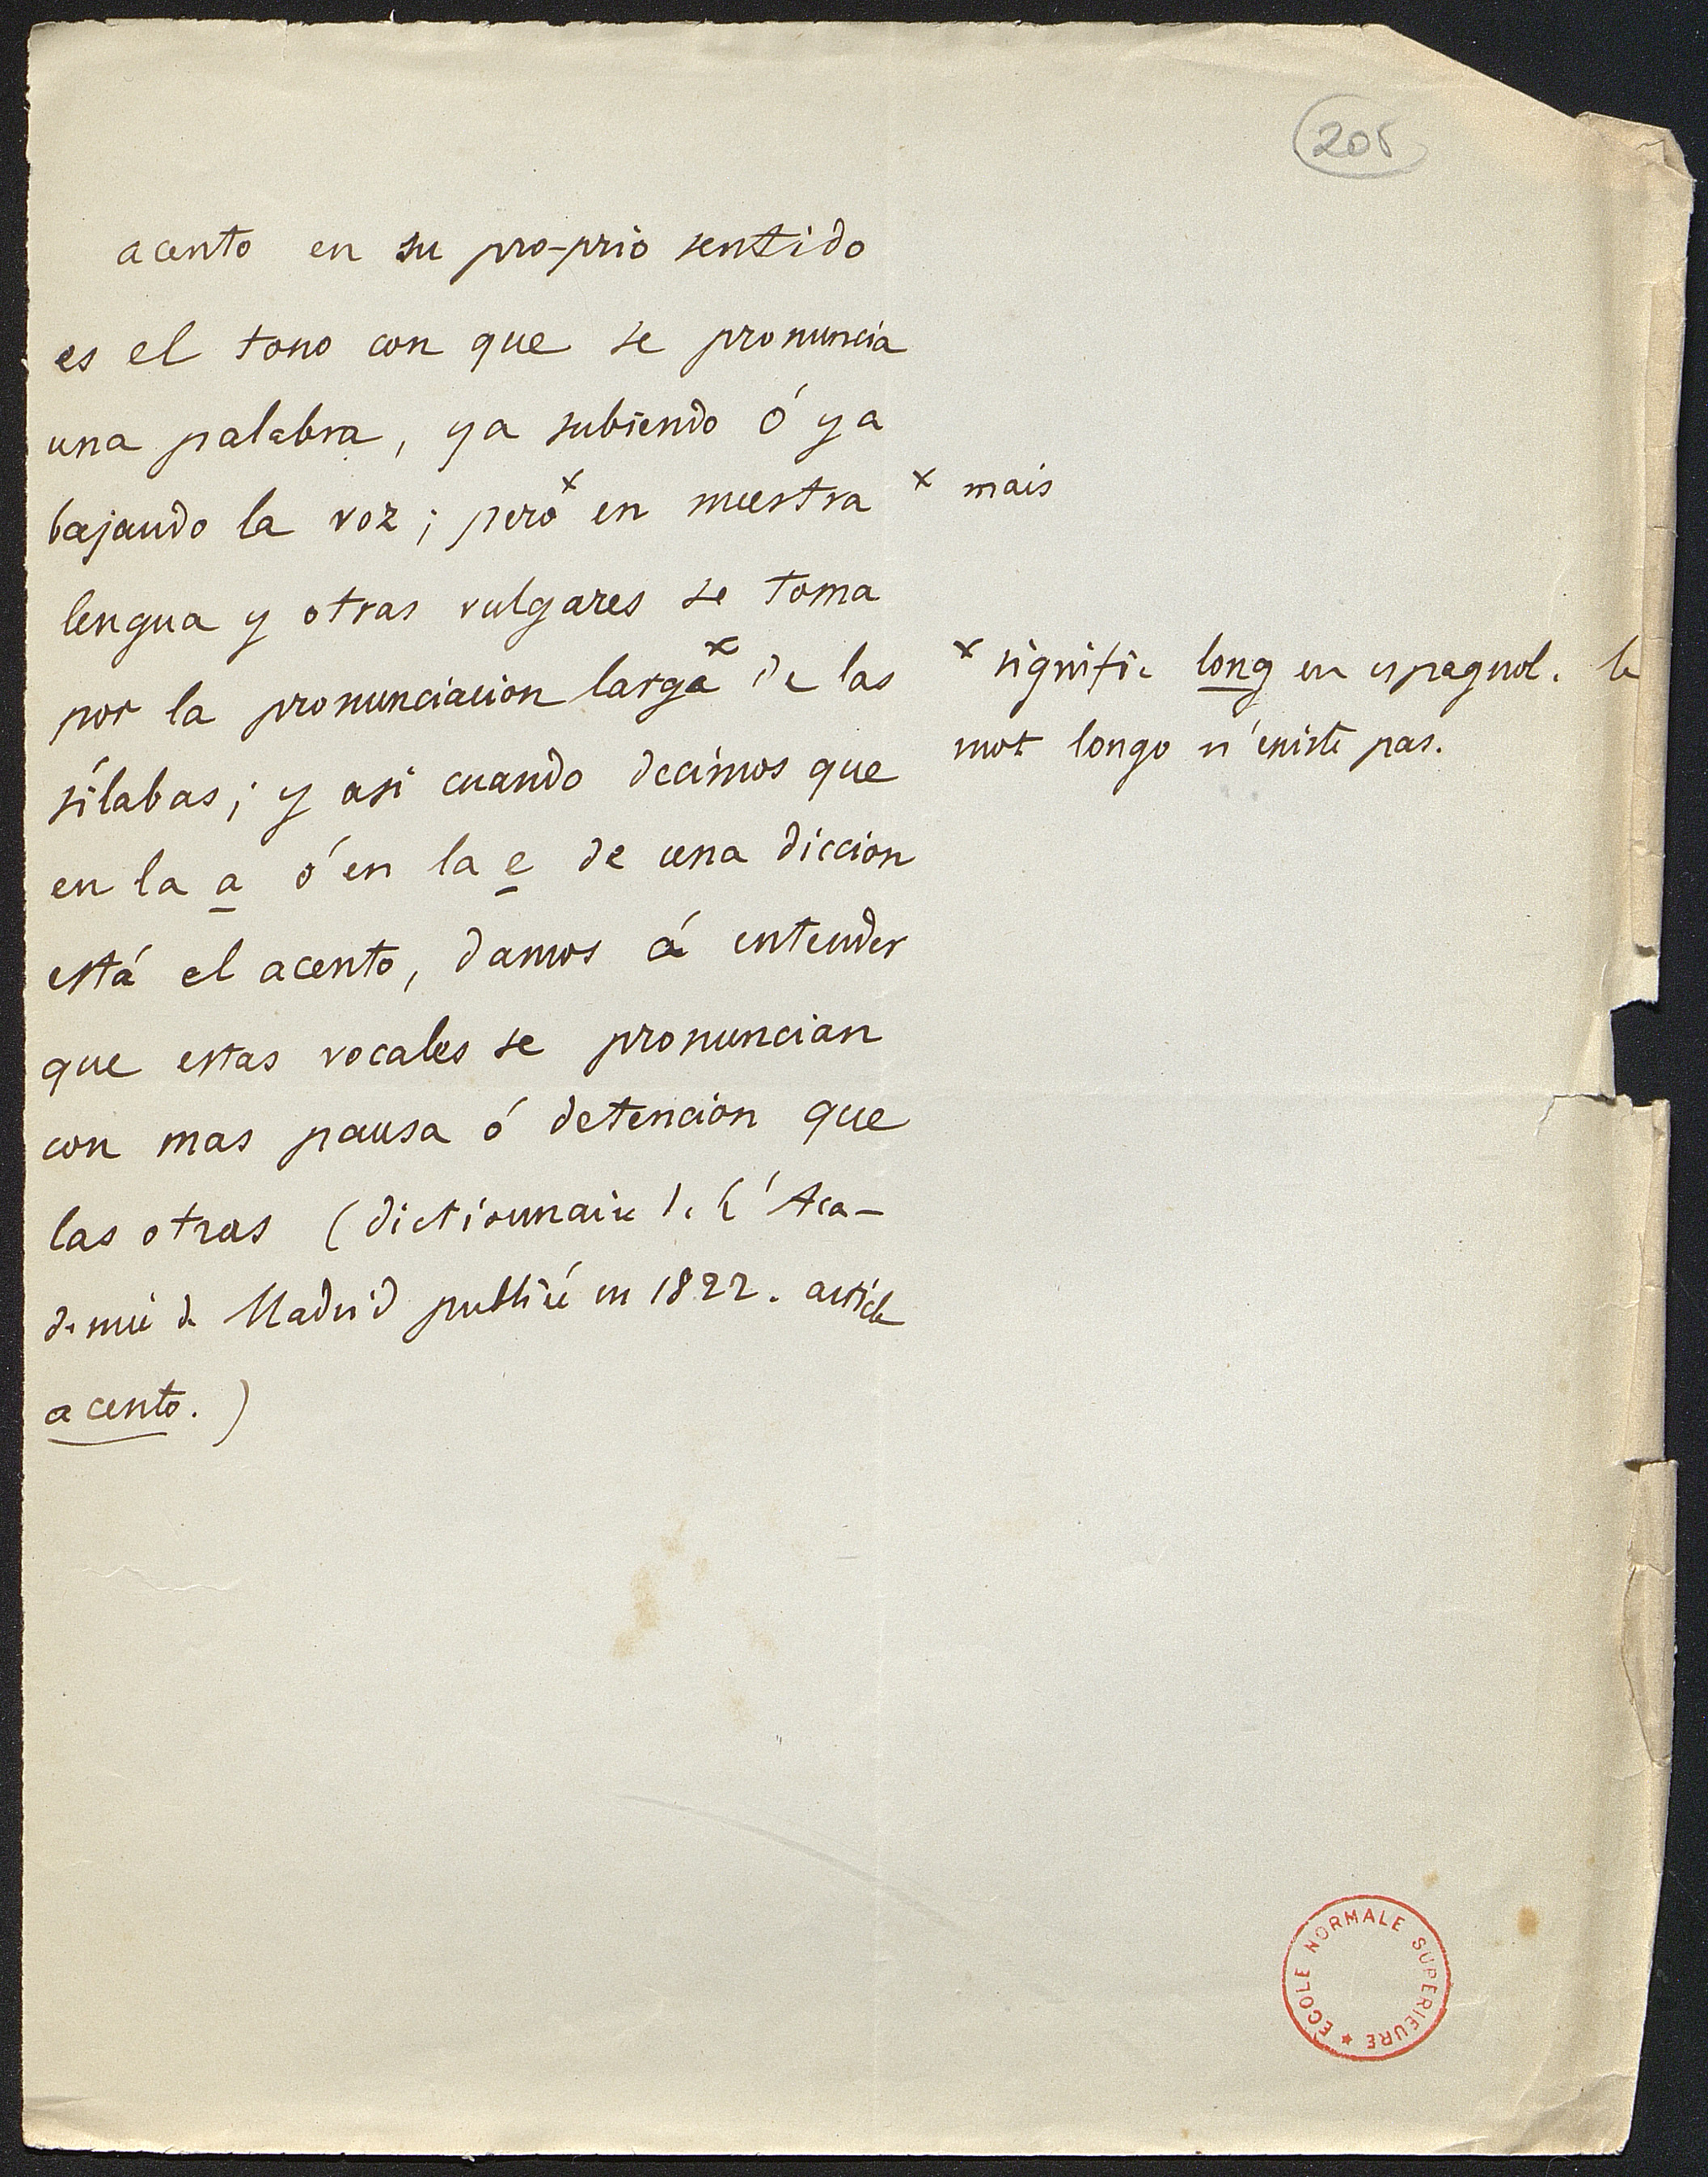 205
acento en su pro-prio sentido
es el tono con que se pronuncia
una palabra, ya subiendo ó ya
bajando la voz; pero x en nuestra
x mais
lengua y otras vulgares se toma
por la pronunciacion larga x de las
x signifie long en espagnol. le
mot longo n'existe pas.
sílabas; y asi cuando decimos que
en la a ó en la e de una diccion
está el acento, damos á entender
que estas vocales se pronuncian
con mas pausa ó detencion que
las otras (dictionnaire de l'Aca-
demie de Madrid publié en 1822. article
acento.)
ECOLE NORMALE SUPERIEURE